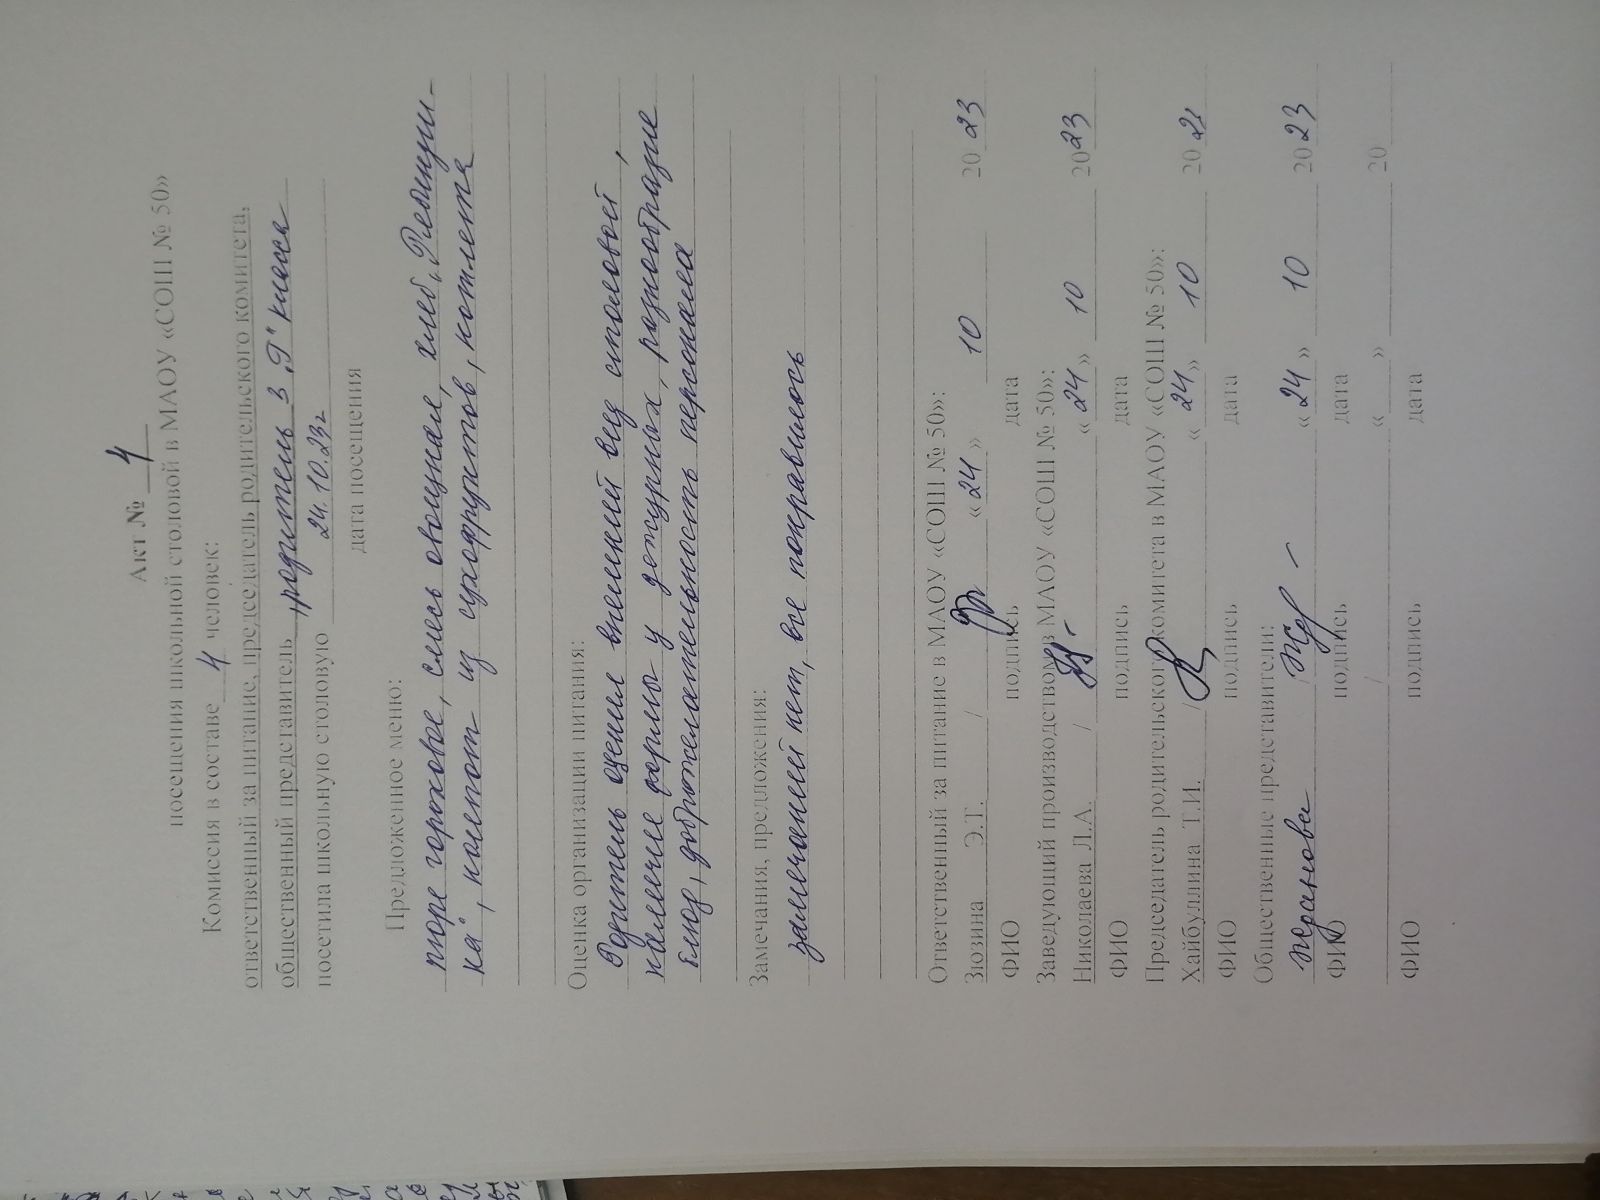 Акт № 4
посещения школьной столовой в МАОУ «СОШ № 50»
Комиссия в составе 4 человек:
ответственный за питание, председатель родительского комитета,
общественный представитель родитель 3 „Г" класса
посетила школьную столовую 24.10.23г
дата посещения
Предложенное меню:
пюре гороховое, смесь овощная, хлеб „Ремишин-
ка", компот из сухофруктов, котлета
Оценка организации питания:
Родитель оценил внешний вид столовой,
наличие формы у дежурных, разнообразие
блюд, доброжелательность персонала
Замечания, предложения:
замечаний нет, все понравилось
Ответственный за питание в МАОУ «СОШ № 50»:
Зюзина Э.Т. / «24» 10 2023
ФИО подпись дата
Заведующий производством в МАОУ «СОШ № 50»:
Николаева Л.А. / «24» 10 2023
ФИО подпись дата
Председатель родительского комитета в МАОУ «СОШ № 50»:
Хайбуллина Т.И. / «24» 10 20
ФИО подпись дата
Общественные представители:
/ «24» 10 2023
ФИО подпись дата
/ « » 20
ФИО подпись дата